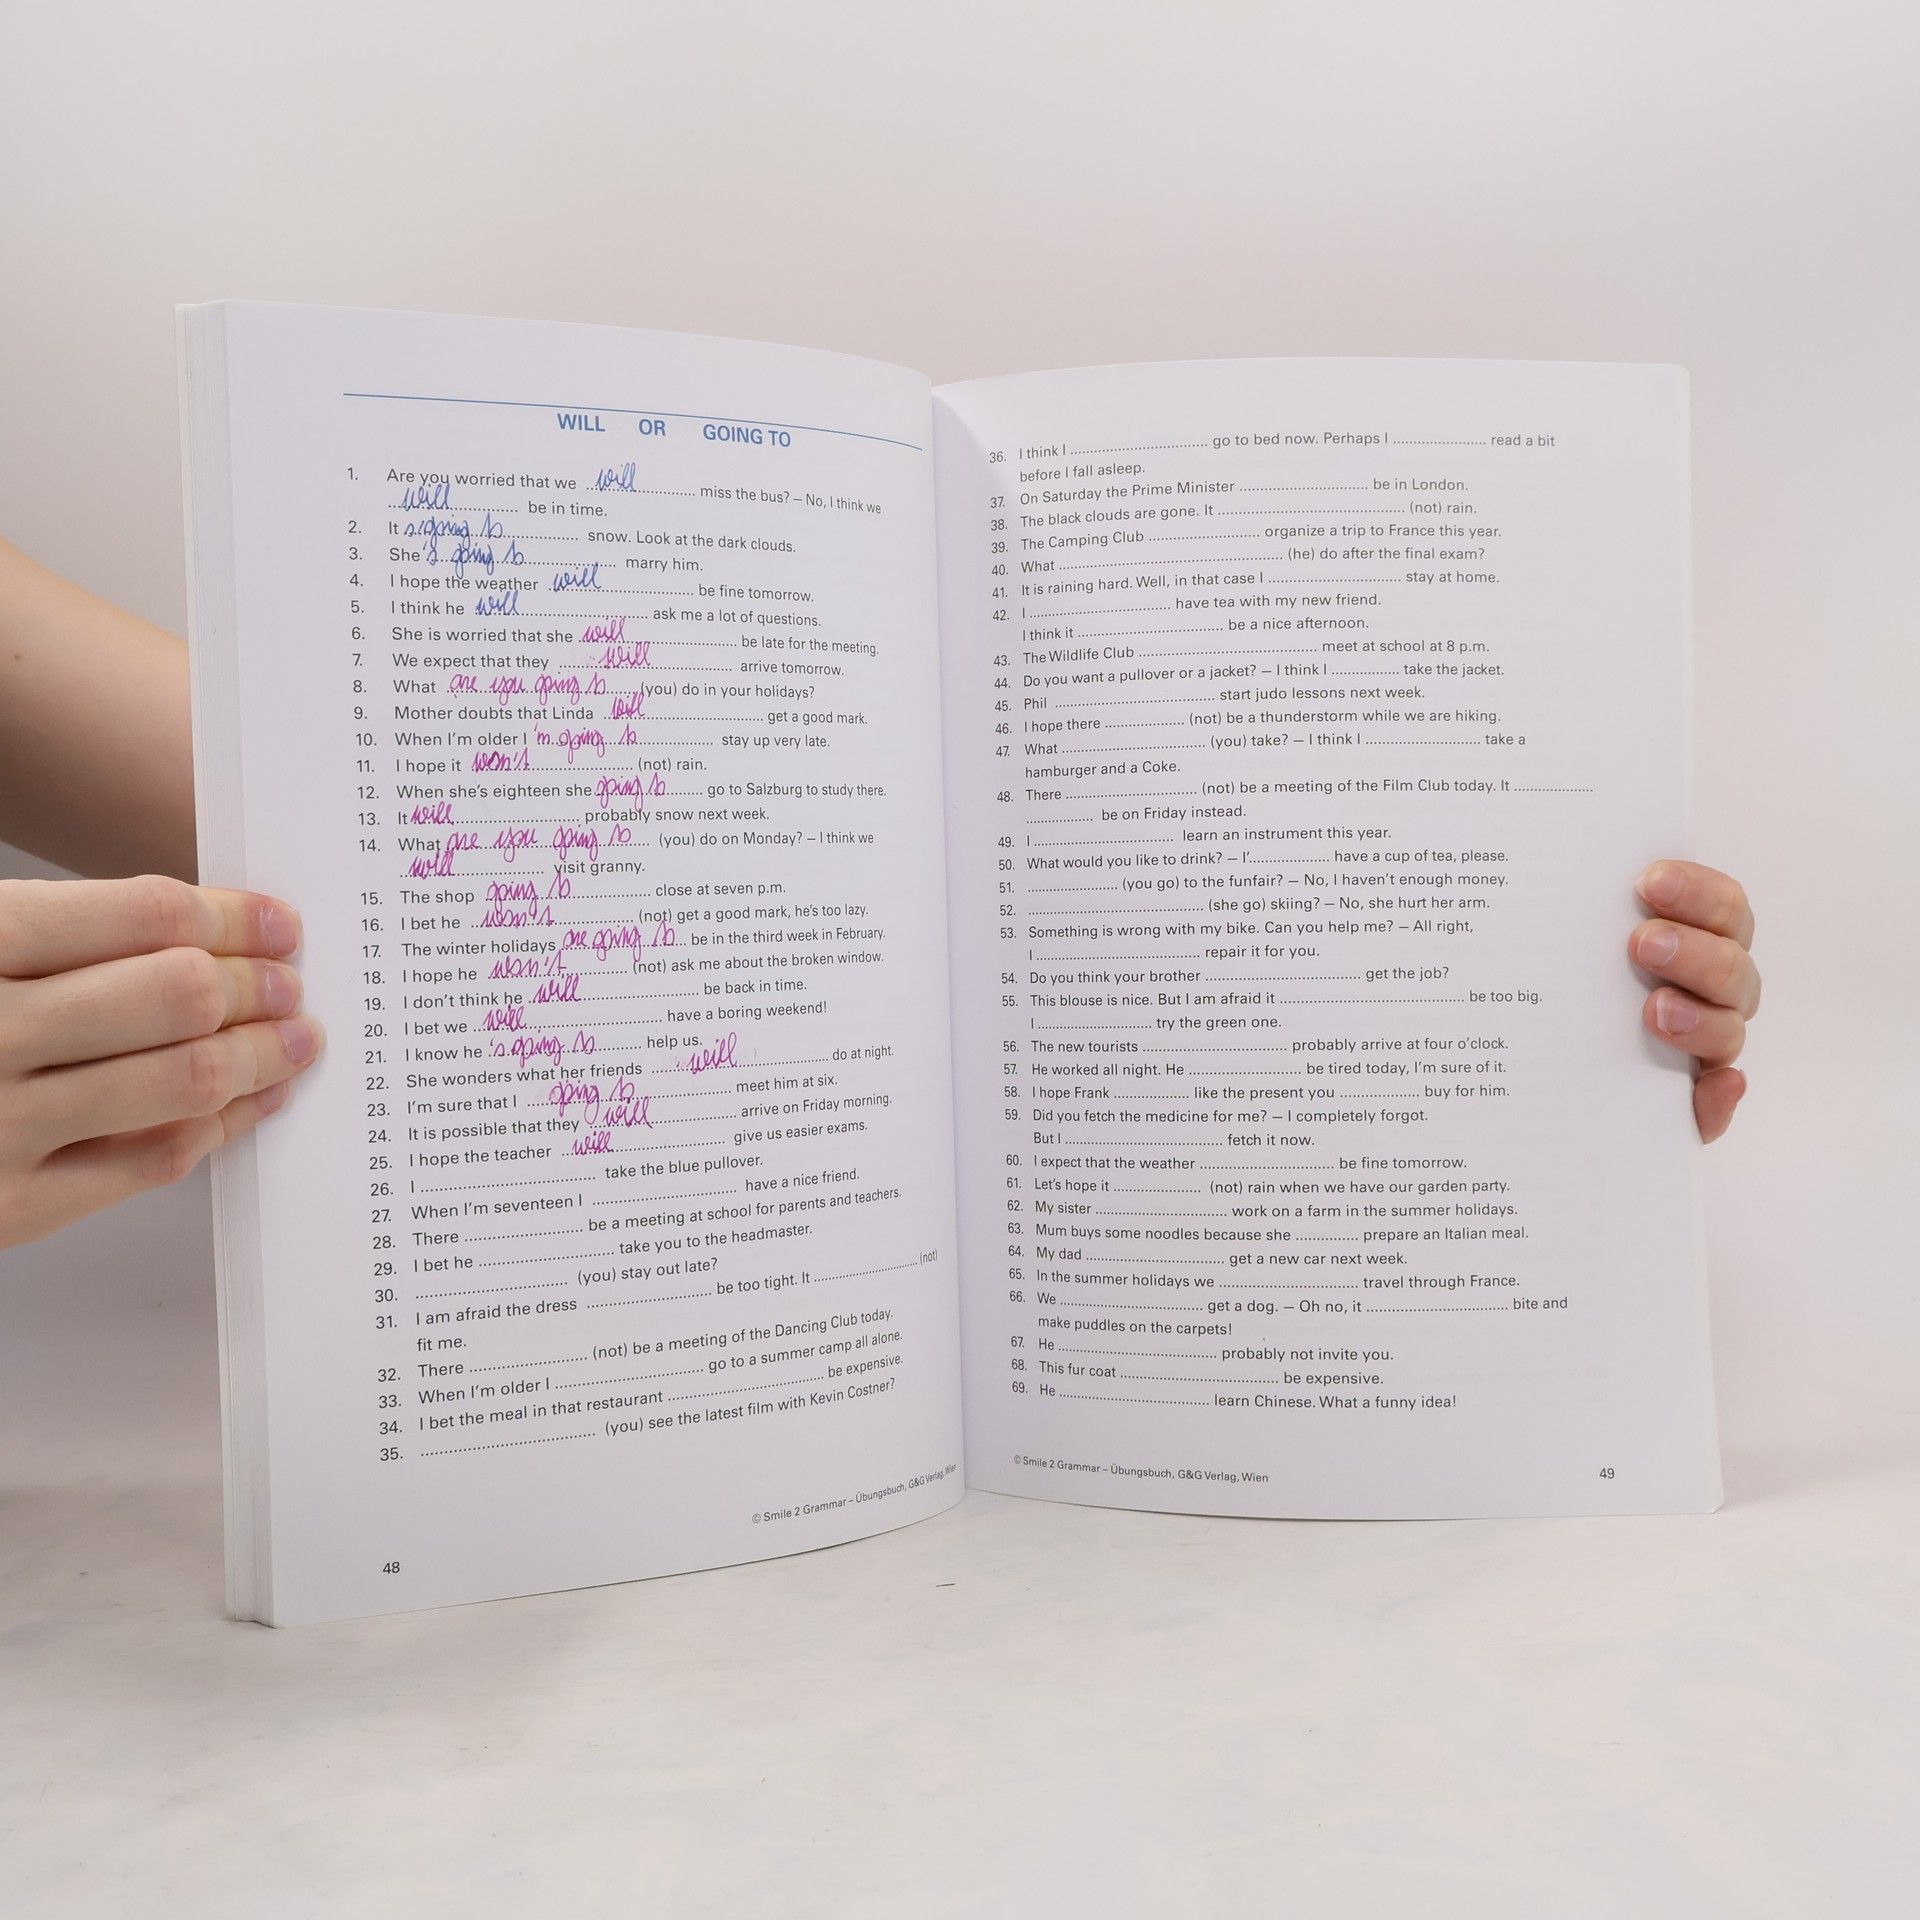 WILL OR GOING TO
1. Are you worried that we will miss the bus? – No, I think we
will be in time.
2. It 's going to snow. Look at the dark clouds.
3. She 's going to marry him.
4. I hope the weather will be fine tomorrow.
5. I think he will ask me a lot of questions.
6. She is worried that she will be late for the meeting.
7. We expect that they will arrive tomorrow.
8. What are you going to (you) do in your holidays?
9. Mother doubts that Linda will get a good mark.
10. When I'm older I 'm going to stay up very late.
11. I hope it won't (not) rain.
12. When she's eighteen she going to go to Salzburg to study there.
13. It will probably snow next week.
14. What are you going to (you) do on Monday? – I think we
will visit granny.
15. The shop going to close at seven p.m.
16. I bet he won't (not) get a good mark, he's too lazy.
17. The winter holidays are going to be in the third week in February.
18. I hope he won't (not) ask me about the broken window.
19. I don't think he will be back in time.
20. I bet we will have a boring weekend!
21. I know he 's going to help us.
22. She wonders what her friends will do at night.
23. I'm sure that I going to meet him at six.
24. It is possible that they will arrive on Friday morning.
25. I hope the teacher will give us easier exams.
26. I ........ take the blue pullover.
27. When I'm seventeen I ........ have a nice friend.
28. There ........ be a meeting at school for parents and teachers.
29. I bet he ........ take you to the headmaster.
30. ........ (you) stay out late?
31. I am afraid the dress ........ be too tight. It ........ (not)
fit me.
32. There ........ (not) be a meeting of the Dancing Club today.
33. When I'm older I ........ go to a summer camp all alone.
34. I bet the meal in that restaurant ........ be expensive.
35. ........ (you) see the latest film with Kevin Costner?
© Smile 2 Grammar – Übungsbuch, G&G Verlag, Wien
48
36. I think I ........ go to bed now. Perhaps I ........ read a bit
before I fall asleep.
37. On Saturday the Prime Minister ........ be in London.
38. The black clouds are gone. It ........ (not) rain.
39. The Camping Club ........ organize a trip to France this year.
40. What ........ (he) do after the final exam?
41. It is raining hard. Well, in that case I ........ stay at home.
42. I ........ have tea with my new friend.
I think it ........ be a nice afternoon.
43. The Wildlife Club ........ meet at school at 8 p.m.
44. Do you want a pullover or a jacket? – I think I ........ take the jacket.
45. Phil ........ start judo lessons next week.
46. I hope there ........ (not) be a thunderstorm while we are hiking.
47. What ........ (you) take? – I think I ........ take a
hamburger and a Coke.
48. There ........ (not) be a meeting of the Film Club today. It ........
........ be on Friday instead.
49. I ........ learn an instrument this year.
50. What would you like to drink? – I'........ have a cup of tea, please.
51. ........ (you go) to the funfair? – No, I haven't enough money.
52. ........ (she go) skiing? – No, she hurt her arm.
53. Something is wrong with my bike. Can you help me? – All right,
I ........ repair it for you.
54. Do you think your brother ........ get the job?
55. This blouse is nice. But I am afraid it ........ be too big.
I ........ try the green one.
56. The new tourists ........ probably arrive at four o'clock.
57. He worked all night. He ........ be tired today, I'm sure of it.
58. I hope Frank ........ like the present you ........ buy for him.
59. Did you fetch the medicine for me? – I completely forgot.
But I ........ fetch it now.
60. I expect that the weather ........ be fine tomorrow.
61. Let's hope it ........ (not) rain when we have our garden party.
62. My sister ........ work on a farm in the summer holidays.
63. Mum buys some noodles because she ........ prepare an Italian meal.
64. My dad ........ get a new car next week.
65. In the summer holidays we ........ travel through France.
66. We ........ get a dog. – Oh no, it ........ bite and
make puddles on the carpets!
67. He ........ probably not invite you.
68. This fur coat ........ be expensive.
69. He ........ learn Chinese. What a funny idea!
© Smile 2 Grammar – Übungsbuch, G&G Verlag, Wien
49